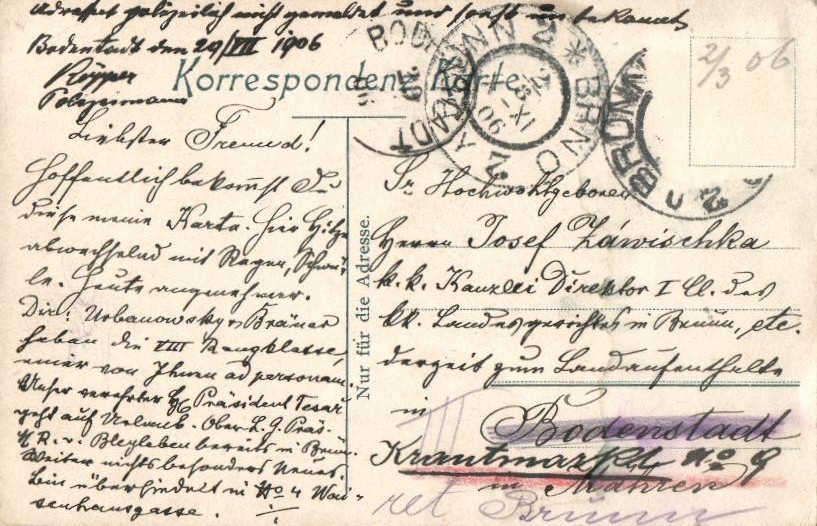 Adressat polizeilich nicht gemeldet und sonst unbekannt
Bodenstadt den 29/VII 1906
Polizeimann
Korrespondenz-Karte
BRÜNN 2 * BRNO
XI
06
BRÜNN
2/3 06
Liebster Freund!
Hoffentlich bekommst Du
diese meine Karte. Hier Hitze
abwechselnd mit Regen, Schwü-
le. Heute angenehmer.
Dir: Urbanowsky, Bräner
haben die VIII Rangklasse,
einer von Ihnen ad personam.
Unser verehrter H. Präsident Tesař
geht auf Urlaub. Ober L. G. Präs.
v. Blegleben bereits in Brünn.
Weiter nichts besonders Neues.
Bin übersiedelt in No 4 Wai-
senhausgasse.
Nur für die Adresse.
Sr Hochwohlgeboren
Herrn Josef Záwischka
k. k. Kanzlei Direktor I Cl. des
kk. Landesgerichtes in Brünn, etc.
derzeit zum Landaufenthalte
in
Bodenstadt
Krautmarkt No 9
in Mähren
ret Brünn